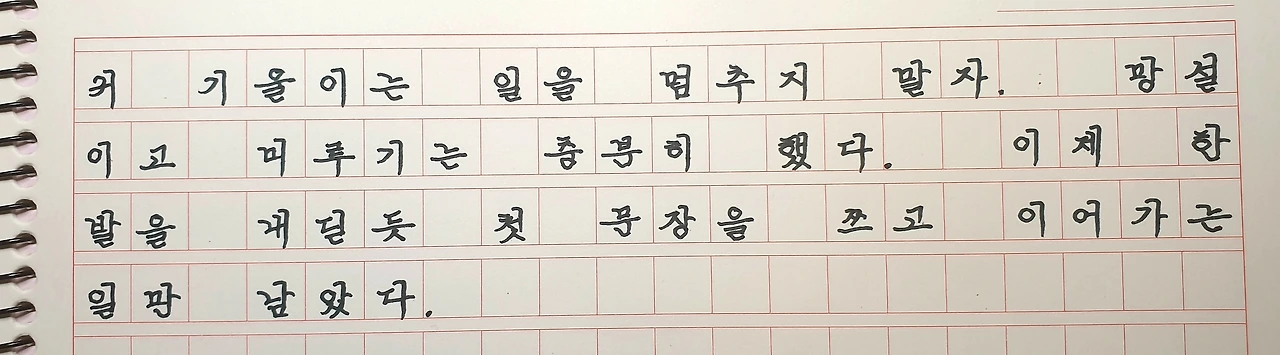 귀 기울이는 일을 멈추지 말자. 망설
이고 미루기는 충분히 했다. 이제 한
발을 내딛듯 첫 문장을 쓰고 이어가는
일만 남았다.